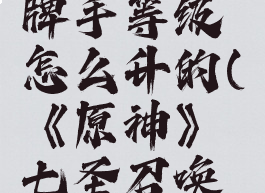 牌手等级
怎么升的(
《原神》
七圣召唤